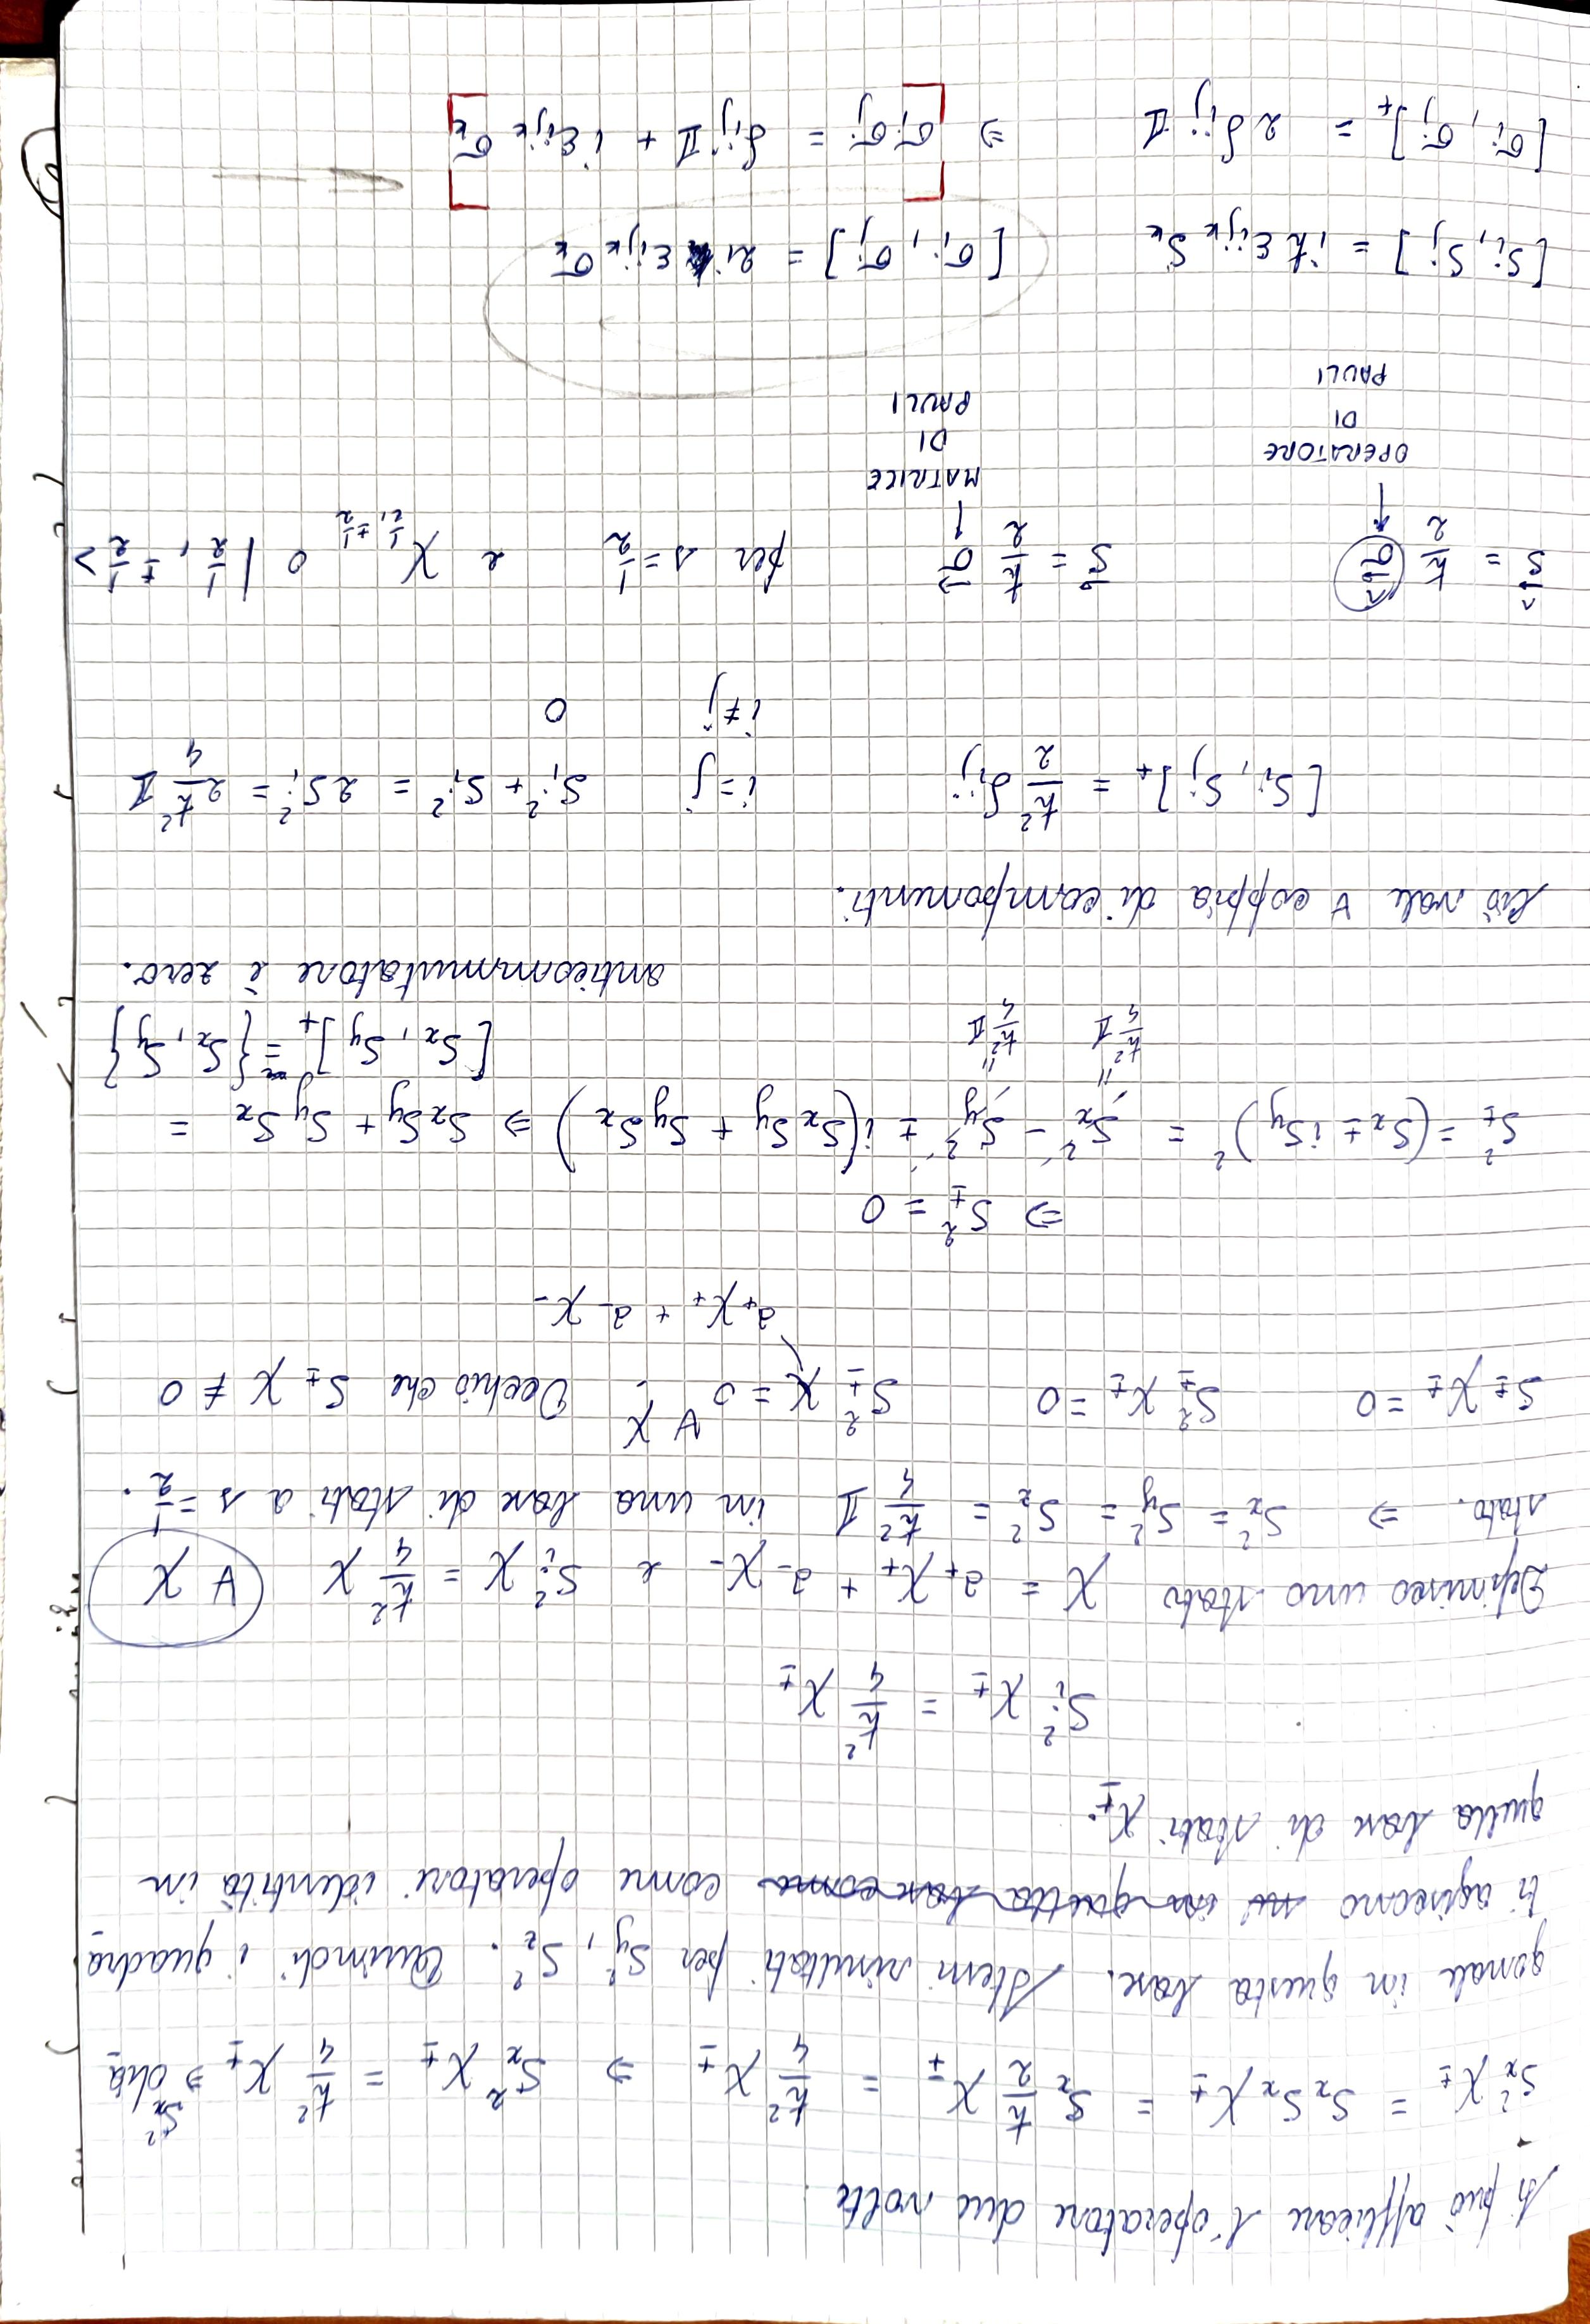 Si può applicare l'operatore due volte
Sx² χ± = Sx Sx χ± = Sx ħ/2 χ∓ = ħ²/4 χ± ⇒ Sx² χ± = ħ²/4 χ± ⇒ Sx² dia-
gonale in questa base. Stessi risultati per Sy², Sz². Quindi i quadra-
ti agiscono come operatori identità in
quella base di stati χ±.
Si² χ± = ħ²/4 χ±
Definisco uno stato χ = a+ χ+ + a- χ- e Si² χ = ħ²/4 χ ∀ χ
stato. ⇒ Sx² = Sy² = Sz² = ħ²/4 𝟙 in una base di stati a s = 1/2.
S± χ± = 0 S±² χ± = 0 S±² χ = 0 ∀ χ ; Occhio che S± χ ≠ 0
a+ χ+ + a- χ-
⇒ S±² = 0
S±² = (Sx ± i Sy)² = Sx² - Sy² ± i (Sx Sy + Sy Sx) ⇒ Sx Sy + Sy Sx =
ħ²/4 𝟙 ħ²/4 𝟙 [Sx, Sy]+ = {Sx, Sy}
anticommutatore è zero.
Ciò vale ∀ coppia di componenti.
[Si, Sj]+ = ħ²/2 δij i=j Si² + Si² = 2Si² = 2 ħ²/4 𝟙
i≠j 0
S = ħ/2 σ S = ħ/2 σ per s = 1/2 e χ 1/2, ±1/2 o |1/2, ±1/2>
OPERATORE DI PAULI
MATRICE DI PAULI
[Si, Sj] = iħ εijk Sk [σi, σj] = 2i εijk σk
[σi, σj]+ = 2 δij 𝟙 ⇒ σi σj = δij 𝟙 + i εijk σk